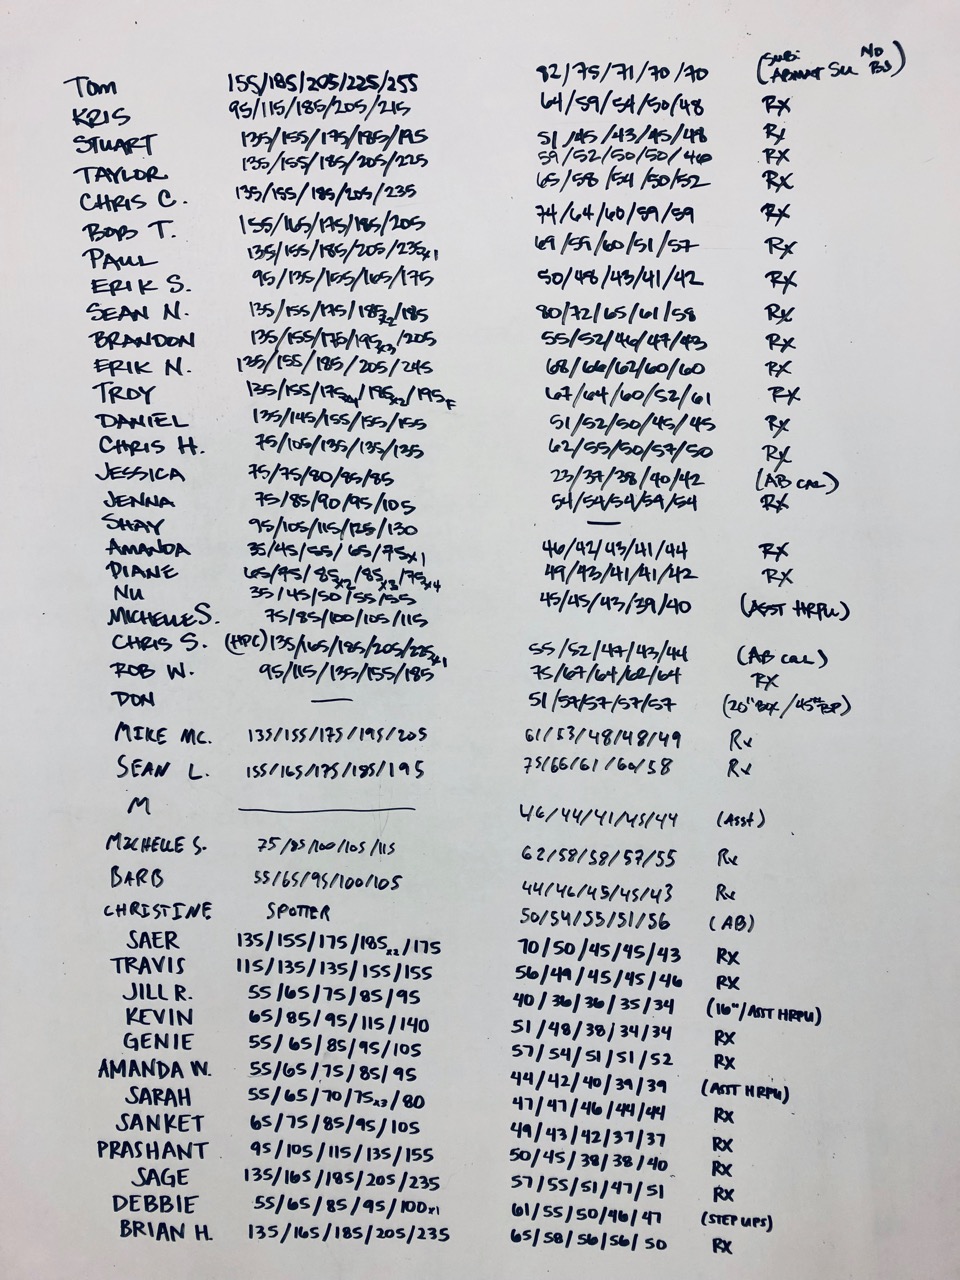 Tom 155/185/205/225/255 82/75/71/70/70 (SUB: ABMAT SU NO BJ)
KRIS 95/115/185/205/215 64/59/54/50/48 RX
STUART 135/155/175/185/195 51/45/43/45/48 RX
TAYLOR 135/155/185/205/225 59/52/50/50/46 RX
CHRIS C. 135/155/185/205/235 65/58/54/50/52 RX
BOB T. 155/165/175/185/205 74/64/60/59/59 RX
PAUL 135/155/185/205/235x1 69/59/60/51/57 RX
ERIK S. 95/135/155/165/175 50/48/43/41/42 RX
SEAN N. 135/155/175/185x2/185 80/72/65/61/58 RX
BRANDON 135/155/175/195x3/205 55/52/46/47/43 RX
ERIK N. 135/155/185/205/245 68/66/62/60/60 RX
TROY 135/155/175x4/195x2/195F 67/64/60/52/61 RX
DANIEL 135/145/155/155/155 51/52/50/45/45 RX
CHRIS H. 75/105/135/135/135 62/55/50/57/50 RX
JESSICA 75/75/80/85/85 23/37/38/40/42 (AB CAL)
JENNA 75/85/90/95/105 54/54/54/59/54 RX
SHAY 95/105/115/125/130 —
AMANDA 35/45/55/65/75x1 46/42/43/41/44 RX
DIANE 65/75/85x2/85x3/75x4 49/43/41/41/42 RX
NU 35/45/50/55/55 45/45/43/39/40 (ASST HRPU)
MICHELLE S. 75/85/100/105/115
CHRIS S. (HPC) 135/165/185/205/225x1 55/52/47/43/44 (AB CAL)
ROB W. 95/115/135/155/185 75/67/64/62/64 RX
DON — 51/57/57/57/57 (20" BOX/45# BP)
MIKE MC. 135/155/175/195/205 61/53/48/48/49 Rx
SEAN L. 155/165/175/185/195 75/66/61/60/58 Rx
M — 46/44/41/45/44 (Asst)
MICHELLE S. 75/85/100/105/115 62/58/58/57/55 Rx
BARB 55/65/95/100/105 44/46/45/45/43 Rx
CHRISTINE SPOTTER 50/54/55/51/56 (AB)
SAER 135/155/175/185x2/175 70/50/45/45/43 RX
TRAVIS 115/135/135/155/155 56/49/45/45/46 RX
JILL R. 55/65/75/85/95 40/36/36/35/34 (16"/ASST HRPU)
KEVIN 65/85/95/115/140 51/48/38/34/34 RX
GENIE 55/65/85/95/105 57/54/51/51/52 RX
AMANDA W. 55/65/75/85/95 44/42/40/39/39 (ASST HRPU)
SARAH 55/65/70/75x3/80 47/47/46/44/44 RX
SANKET 65/75/85/95/105 49/43/42/37/37 RX
PRASHANT 95/105/115/135/155 50/45/38/38/40 RX
SAGE 135/165/185/205/235 57/55/51/47/51 RX
DEBBIE 55/65/85/95/100x1 61/55/50/46/47 (STEP UPS)
BRIAN H. 135/165/185/205/235 65/58/56/56/50 RX